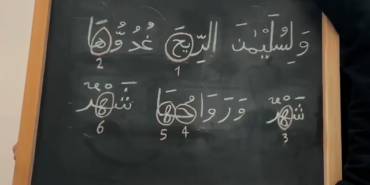 وَلِسُلَيْمَٰنَ الرِّيحَ غُدُوُّهَا
1 2
شَهْرٌ وَرَوَاحُهَا شَهْرٌ
3 4 5 6